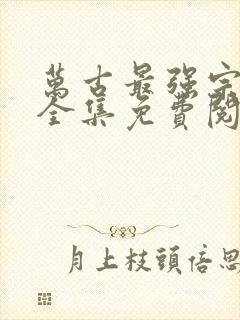 萬古最强宗
全集免費閱
月上枝頭倍思